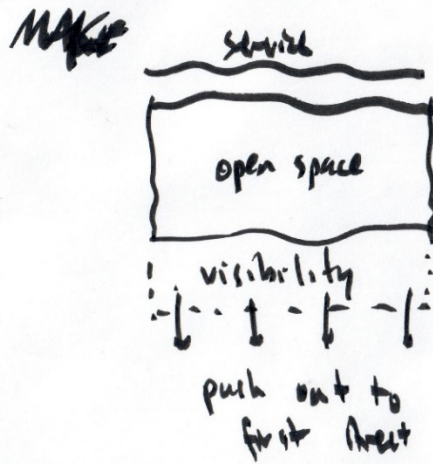 service
open space
visibility
push out to
first street